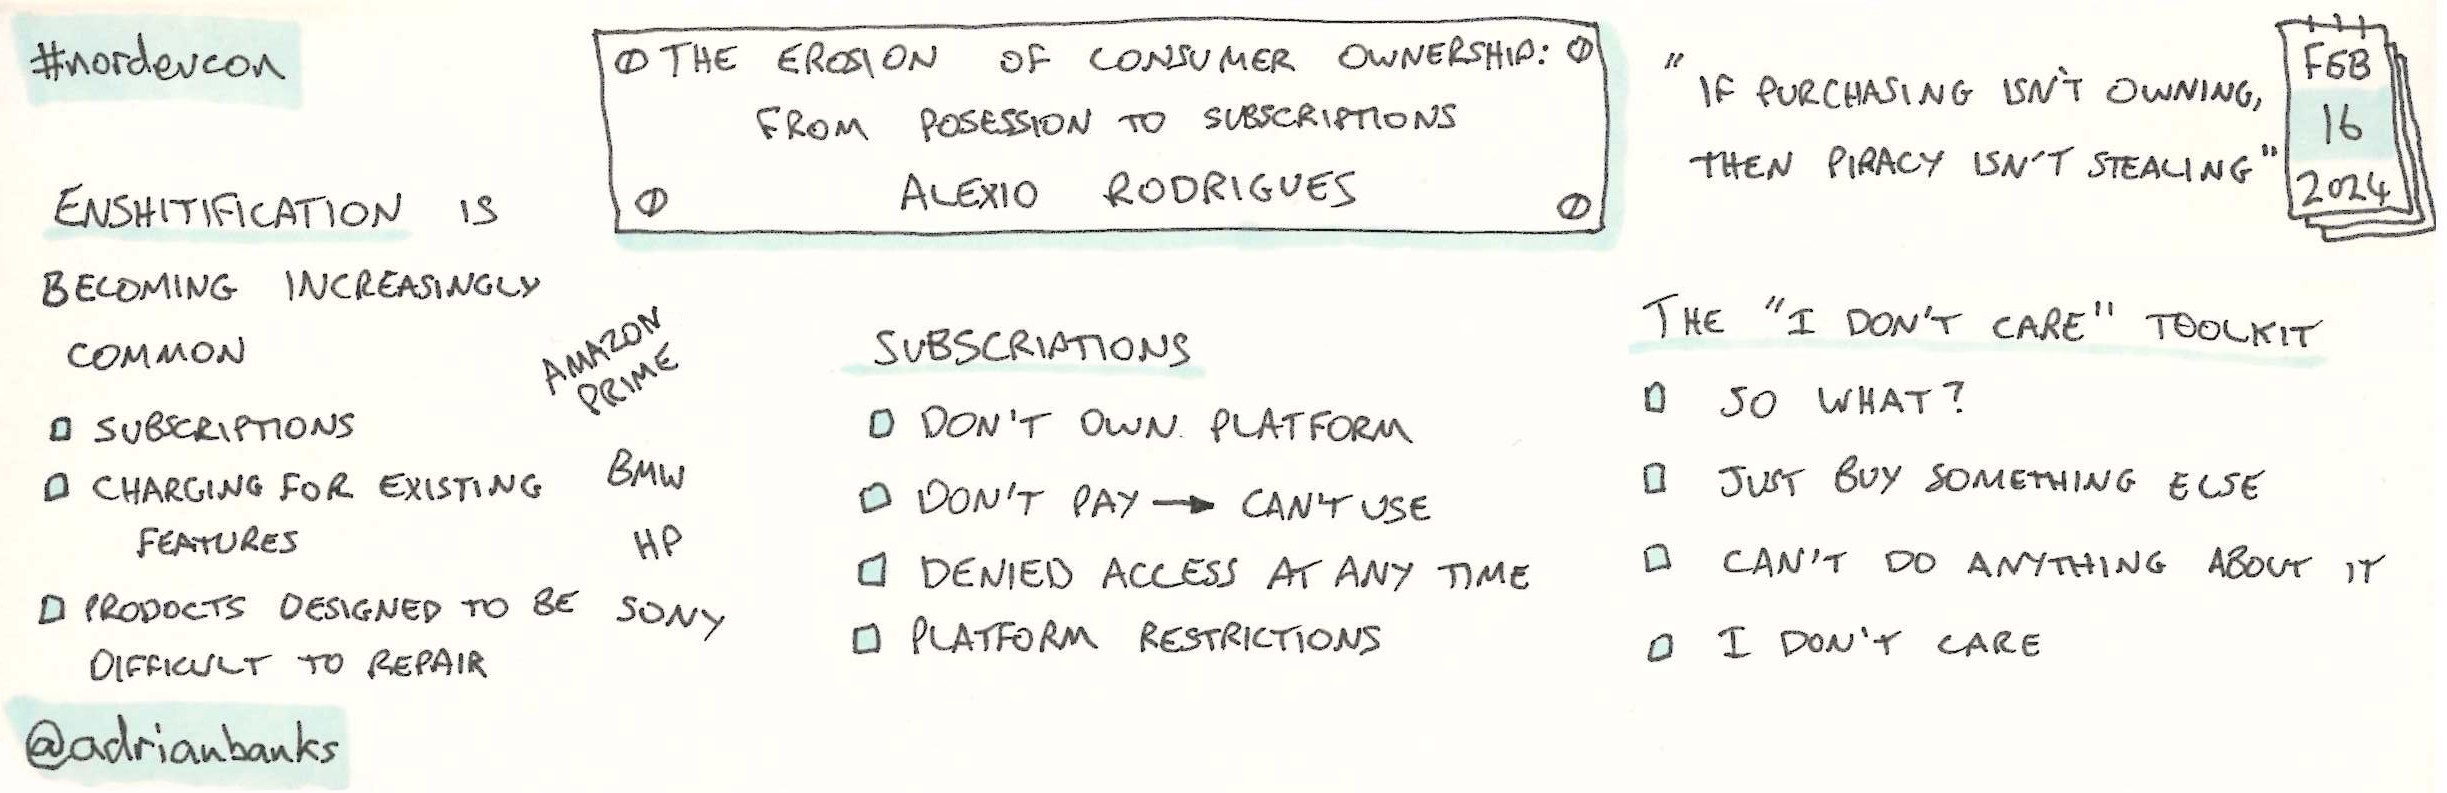 #nordevcon
THE EROSION OF CONSUMER OWNERSHIP:
FROM POSESSION TO SUBSCRIPTIONS
ALEXIO RODRIGUES
"IF PURCHASING ISN'T OWNING,
THEN PIRACY ISN'T STEALING"
FEB
16
2024
ENSHITIFICATION IS
BECOMING INCREASINGLY
COMMON
SUBSCRIPTIONS
CHARGING FOR EXISTING
FEATURES
PRODUCTS DESIGNED TO BE
DIFFICULT TO REPAIR
AMAZON
PRIME
BMW
HP
SONY
SUBSCRIPTIONS
DON'T OWN PLATFORM
DON'T PAY → CAN'T USE
DENIED ACCESS AT ANY TIME
PLATFORM RESTRICTIONS
THE "I DON'T CARE" TOOLKIT
SO WHAT?
JUST BUY SOMETHING ELSE
CAN'T DO ANYTHING ABOUT IT
I DON'T CARE
@adrianbanks